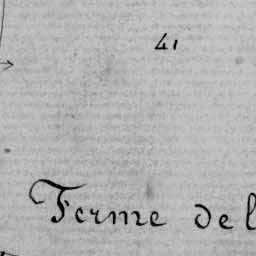 41
Ferme del